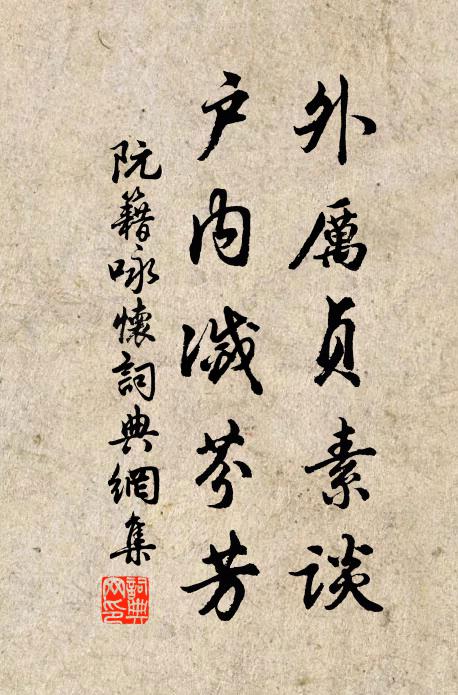 外厲貞素談
户内滅芬芳
阮籍咏懷詞典網集
詞典網印